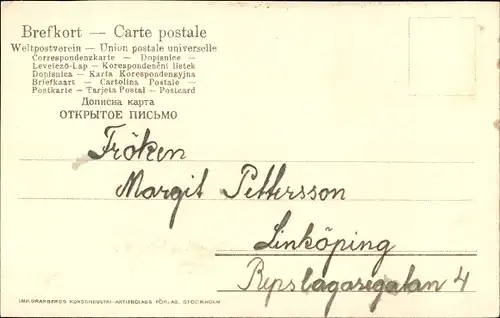 Brefkort — Carte postale
Weltpostverein — Union postale universelle
Correspondenzkarte — Dopisnice —
Levelező-Lap — Korespondenční lístek
Dopisnica — Karta Korespondenzyjna
Briefkaart — Cartolina Postale —
Postkarte — Tarjeta Postal — Postcard
Дописна карта
ОТКРЫТОЕ ПИСЬМО
Fröken
Margit Pettersson
Linköping
Repslagaregatan 4
IMP. GRANBERGS KONSTINDUSTRI-AKTIEBOLAGS FÖRLAG, STOCKHOLM